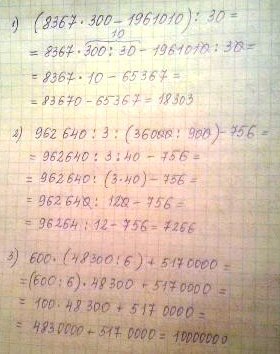 1) (8367 · 300 - 1961010) : 30 =
10
= 8367 · 300 : 30 - 1961010 : 30 =
= 8367 · 10 - 65367 =
= 83670 - 65367 = 18303
2) 962640 : 3 : (36000 : 900) - 756 =
= 962640 : 3 : 40 - 756 =
= 962640 : (3·40) - 756 =
= 962640 : 120 - 756 =
= 96264 : 12 - 756 = 7266
3) 600 · (48300 : 6) + 5170000 =
= (600 : 6) · 48300 + 5170000 =
= 100 · 48300 + 5170000 =
= 4830000 + 5170000 = 10000000